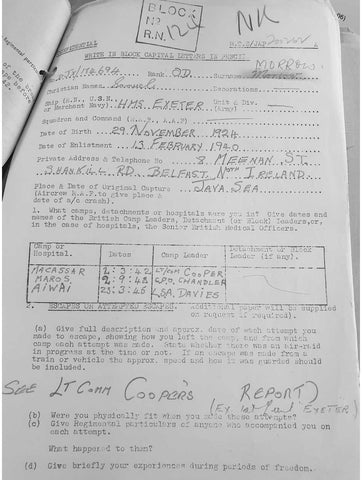 BLOCK
Nº
R.N.
NK
CONFIDENTIAL
M.O.9/JAP/
WRITE IN BLOCK CAPITAL LETTERS IN PENCIL
Rank O.D. Surname MORROW
Christian Names Decorations
Ship (R.N., U.S.N. or Merchant Navy) H.M.S. EXETER Unit & Div. (Army)
Squadron and Command (R.A.F., A.A.F.)
Date of Birth 29. NOVEMBER 1924
Date of Enlistment 13 FEBRUARY 1940
Private Address & Telephone No 8. MEENAN S.T.
SHANKILL RD. BELFAST Nth IRELAND
Place & Date of Original Capture JAVA SEA
(Aircrew R.A.F. to give place &
date of a/c crash).
1. What camps, detachments or hospitals were you in? Give dates and names
of the British Camp Leaders, Detachment (or Block) leaders, or,
in the case of hospitals, the Senior British Medical Officers.
Camp or Hospital. Dates Camp Leader Detachment or Block Leader (if any).
MACASSAR 2:3:42 Lt/COM COOPER
MAROS CHANDLER
DAVIES
2. ESCAPES OR ATTEMPTED ESCAPES. Additional paper will be supplied
on request if required).
(a) Give full description and approx. date of each attempt you
made to escape, showing how you left the camp, and from which
camp each attempt was made. State whether there was an air-raid
in progress at the time or not. If an escape was made from a
train or vehicle the approx. speed and how it was guarded should
be included.
SEE LT COMM COOPER'S REPORT
EXETER)
(b) Were you physically fit when you made these attempts?
(c) Give Regimental particulars of anyone who accompanied you on
each attempt.
What happened to them?
(d) Give briefly your experiences during periods of freedom.